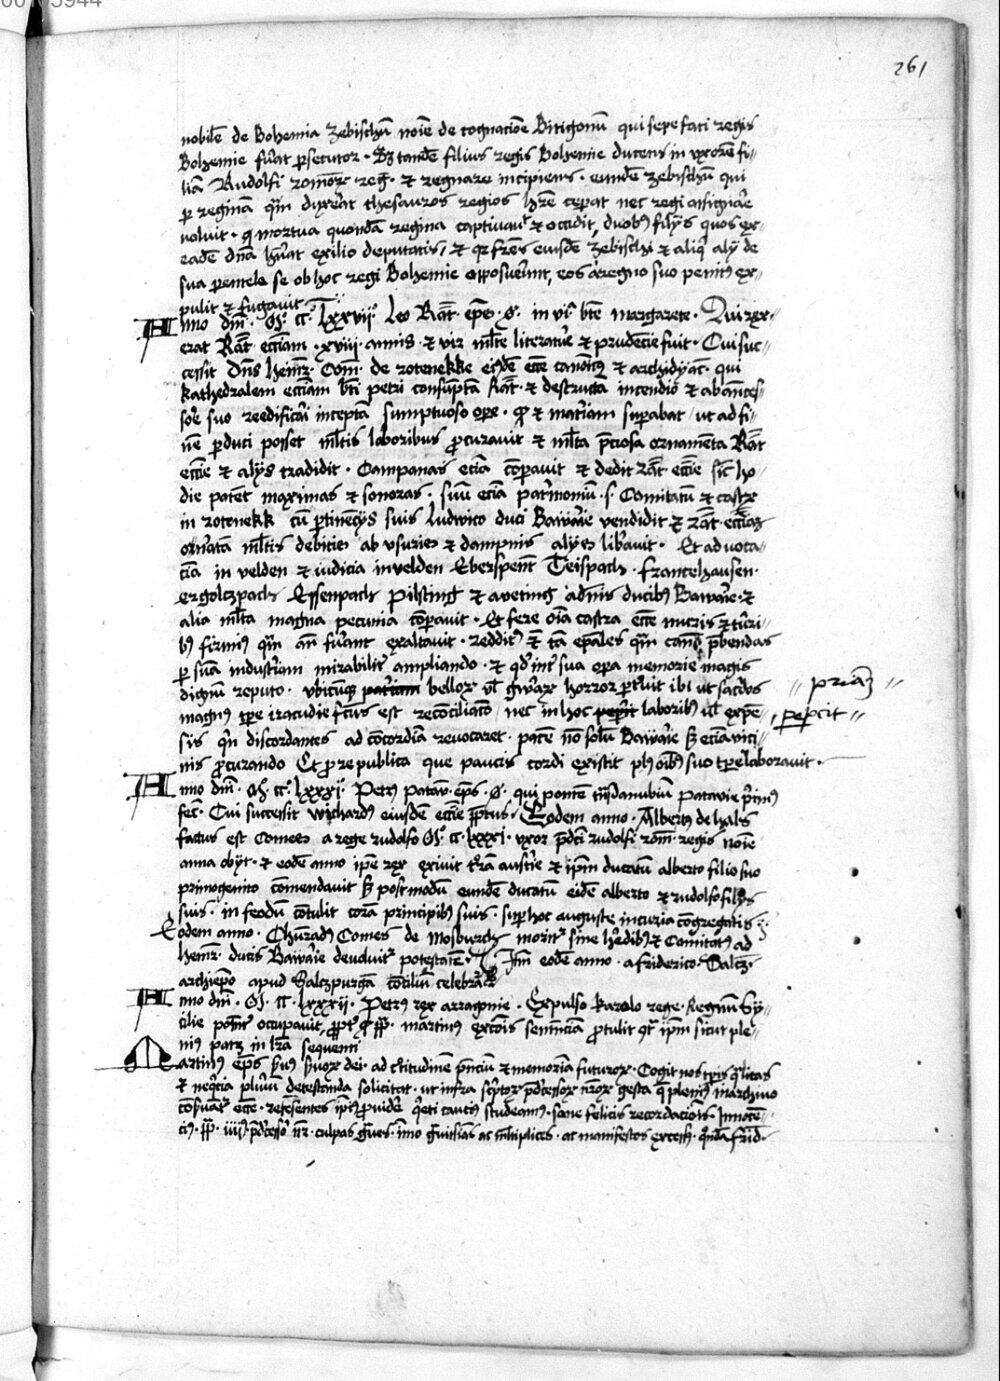 00105944
261
nobilē de Bohemia zebischū noīe de cognacione Witigonū qui sepefati regis
Bohemie fu̓at p̱secutor · Sz tandē filius regis Bohemie ducens in vxorē fi-
liā Rudolfi romōꝝ reg̓ · et regnare incipiens · eundē zebischū qui
ꝑ reginā qm̄ duxerat thesauros regios h̓re ceperat nec regi assignare
noluit · ꝙ mortua quondā regina captivauit et occidit, duobꝰ filijs quos ex
eadē dn̄a hūat exilio deputatis, et qꝛ fr̄es eiusdē zebischi et aliqꝰ alij de
sua parentela se ob hoc regi Bohemie opposuerunt, eos a regno suo penitꝰ ex-
pulit et fugavit
Anno dn̄i · Mº ccº lxxvijº Leo Rat̄ ep̄s · o · in vigī bt̄e margarete · Qui rex-
erat Rat̄ eccl̄iam · xviij · annis · et vir ml̄te literatur̄e et prudēcie fuit · Cui suc-
cessit Dn̄s Heinr̄ · Com̄ · de rotenekke eiꝰdē ecc̄e canonicꝰ et archidyac̄ · qui
kathedralem eccl̄iam bt̄i petri consūptā Rat̄ · et destructā incendio et ab anteces-
sore suo reedificari inceptā sumptuoso oꝑe · ꝙ et mat̄iam suꝑabat, ut ad fi-
nē ꝑduci posset ml̄tis laboribus ꝓcurauit et ml̄ta p̄ciosa ornamēta Rat̄
eccl̄ie et alijs tradidit · Campanas eciā cōꝑauit et dedit rat̄ eccl̄ie sic̄ ho-
die patent maximas et sonoras · suū eciā pat̓moniū · s · Comitatū et castꝝ
in rotenekk cū ꝑtinēcijs suis ludwico duci Bawarie vendidit et rat̄ eccl̄iaꝫ
on̓atā ml̄tis debitis ab vsuris et dampnis alijs lib̓auit · Et aduoca-
ciā in velden et iudicia in velden Eberspeint Teispach · frantehausen ·
ergolczpach Essenpach Pilsting et aueting a dn̄is ducibꝰ Bawarie · et
alia ml̄ta magna pecunia cōꝑauit · Et fere oīa castra ecc̄e muris et turri-
bꝰ firmiꝰ qm̄ an̄ fu̓ant exaltauit · redditꝰ et̄ tā ep̄ales qm̄ canō p̄bendas
ꝑ suā industriam mirabilit̓ ampliando · et qd̓ int̓ sua oꝑa memorie magis
dignū reputo · vbicūqꝫ patriam belloꝝ vl̓ gwerraꝝ horror ꝑt̓uit ibi ut sac̓dos
// priaꝫ //
magnꝰ tꝑe iracūdie fc̄us est recōciliac̄o nec in hoc peꝑit laboribꝰ vl̓ expē-
// peꝑcit //
sis qn̄ discordantes ad cōcordiā reuocaret · pacē nō solū Bawarie sz eciā vici-
nis ꝓcurando Et ꝓ re publica que paucis cordi existit plꝰ oībꝰ suo tꝑe laborauit ·
Anno dn̄i · Mº ccº lxxxjº Petrꝰ patau̓ · ep̄s · o · qui pontē t̄ns danubiū Patauie p̓mus
fec̄ · Cui successit wichardꝰ eiusdē eccl̄ie p̄p̄tus · Eodem anno · Albertꝰ de hals
factus est Comes a rege rudolfo Mº ccº lxxxj · vxor p̄dc̄i rudolfi rom̄ regis noīe
anna obijt · et eodē anno ip̄e rex exiuit t̓rā austr̄ie et ip̄m ducatū alberto filio suo
primogenito cōmendauit sz postmodū eundē ducatū eidē alberto et rudolfo filijs
suis · in feodū cōtulit corā principibꝰ suis · suꝑ hoc auguste in curia cōgregatis ·
Eodem anno · Chūradꝰ Comes de Mosburch morit̓ sine h̓edibꝰ et Comitatꝰ ad
heinr̄ · ducis Bawarie deuoluit̓ potestatē · Itē eodē anno · a friderico · Salcz̄ ·
archiep̄o apud Salczpurgā cōciliū celebrat̓
Anno dn̄i · Mº ccº lxxxij · Petrus rex arragonie · Expulso karolo rege · Regnū Sy-
cilie potēt̓ occupauit, ꝓpt̓ qd̓ pp̄ · martinꝰ excōis sentēciā ꝓtulit qt̓ ip̄m sicut ple-
niꝰ patꝫ in lr̄a sequenti
Martinꝰ ep̄s s̓uus s̓uoꝝ dei · ad c̓titudinē p̄nciū et memoriā futuroꝝ · Cogit nos tꝑis q̓litas
et neq̓cia pluriū detestanda solicitat · ut infra sc̓ptoꝝ p̄dcessoꝝ nr̄oꝝ gesta q̄ pleniꝰ in archiuo
cōs̓uāt̓ ecc̄e · referentes ip̄iꝰ ꝓuide q̓eti cautiꝰ studeamꝰ · sane felicis recordacōis · Innocē-
ciꝰ · pp̄ · iiij · p̄dcessor nr̄ · culpas g̓ues · īmo g̓uissīas ac ml̓tiplices · ac manifestos excess̄ · q̓ndā frid̄ ·